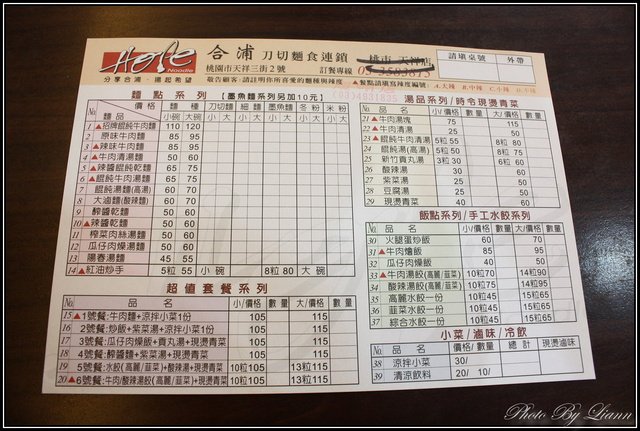 Hope
Noodle
分享合浦．撈起希望
合浦 刀切麵食連鎖
桃園市天祥三街2號 訂餐專線
請填桌號 外帶
敬告顧客：請註明你所喜愛的麵種與辣度
▲餐點請填寫辣度編號： A.大辣 B.中辣 C.小辣 D.不辣
麵點系列 【墨魚麵系列另加10元】
價格 麵種 刀切麵 細麵 墨魚麵 冬粉 米粉
麵品 小碗 大碗
1 ▲招牌餛飩牛肉麵 110 120
2 原味牛肉麵 85 95
3 ▲辣味牛肉麵 85 95
4 ▲牛肉清湯麵 50 60
5 ▲辣醬餛飩乾麵 65 75
6 ▲餛飩牛肉湯麵 65 75
7 餛飩湯麵(高湯) 60 70
8 大滷麵(酸辣麵) 60 70
9 醡醬乾麵 50 60
10 ▲辣醬乾麵 50 60
11 榨菜肉絲湯麵 50 60
12 瓜仔肉燥湯麵 50 60
13 陽春湯麵 45 55
14 ▲紅油炒手 5粒 55 小碗 8粒 80 大碗
超值套餐系列
品名 小/價格 數量 大/價格 數量
15 ▲1號餐：牛肉麵+涼拌小菜1份 105 115
16 2號餐：炒飯+紫菜湯+涼拌小菜1份 105 115
17 3號餐：瓜仔肉燥飯+貢丸湯+現燙青菜 105 115
18 4號餐：醡醬麵+紫菜湯+現燙青菜 105 115
19 5號餐：水餃(高麗/韮菜)+酸辣湯+現燙青菜 10粒105 13粒115
20 ▲6號餐：牛肉/酸辣湯餃(高麗/韮菜)+現燙青菜 10粒105 13粒115
湯品系列/時令現燙青菜
品名 小/價格 數量 大/價格 數量
21 ▲牛肉湯塊 75 115
22 ▲牛肉清湯 25 50
23 ▲餛飩牛肉湯 5粒 55 8粒 80
24 餛飩湯(高湯) 5粒 50 8粒 75
25 新竹貢丸湯 3粒 30 6粒 60
26 酸辣湯 30 50
27 紫菜湯 25 50
28 豆腐湯 25 50
29 現燙青菜 40 50
飯點系列/手工水餃系列
品名 小/價格 數量 大/價格 數量
30 火腿蛋炒飯 60 70
31 ▲牛肉燴飯 85 95
32 瓜仔肉燥飯 40 50
33 ▲牛肉湯餃(高麗/韮菜) 10粒70 14粒90
34 酸辣湯餃(高麗/韮菜) 10粒75 14粒95
35 高麗水餃一份 10粒45 15粒65
36 韮菜水餃一份 10粒45 15粒65
37 綜合水餃一份 10粒45 15粒65
小菜/滷味/冷飲
品名 價格/數量 總計 現燙滷味
38 涼拌小菜 30/
39 清涼飲料 20/ 10/
Photo By Liann